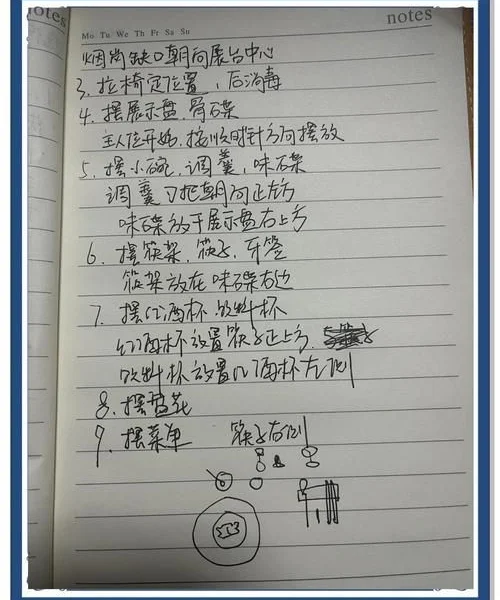 notes
notes
Mo Tu We Th Fr Sa Su
烟岗缺口朝向展台中心
3. 拉椅定位置，后消毒
4. 摆展示盘, 骨碟
主人位开始, 按顺时针方向摆放
5. 摆小碗, 调羹, 味碟
调羹刁把朝向正左方
味碟放于展示盘右上方
6. 摆筷架, 筷子, 牙签
筷架放在味碟右边
7. 摆红酒杯 饮料杯
红酒杯放置筷子正上方,
饮料杯放置红酒杯左侧
8. 摆盘花
9. 摆菜单 筷子右侧